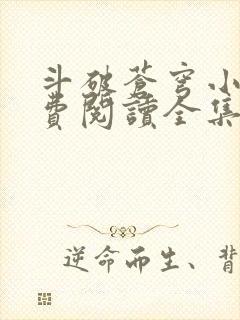 斗破蒼穹小
費閱讀全集
逆命而生、背